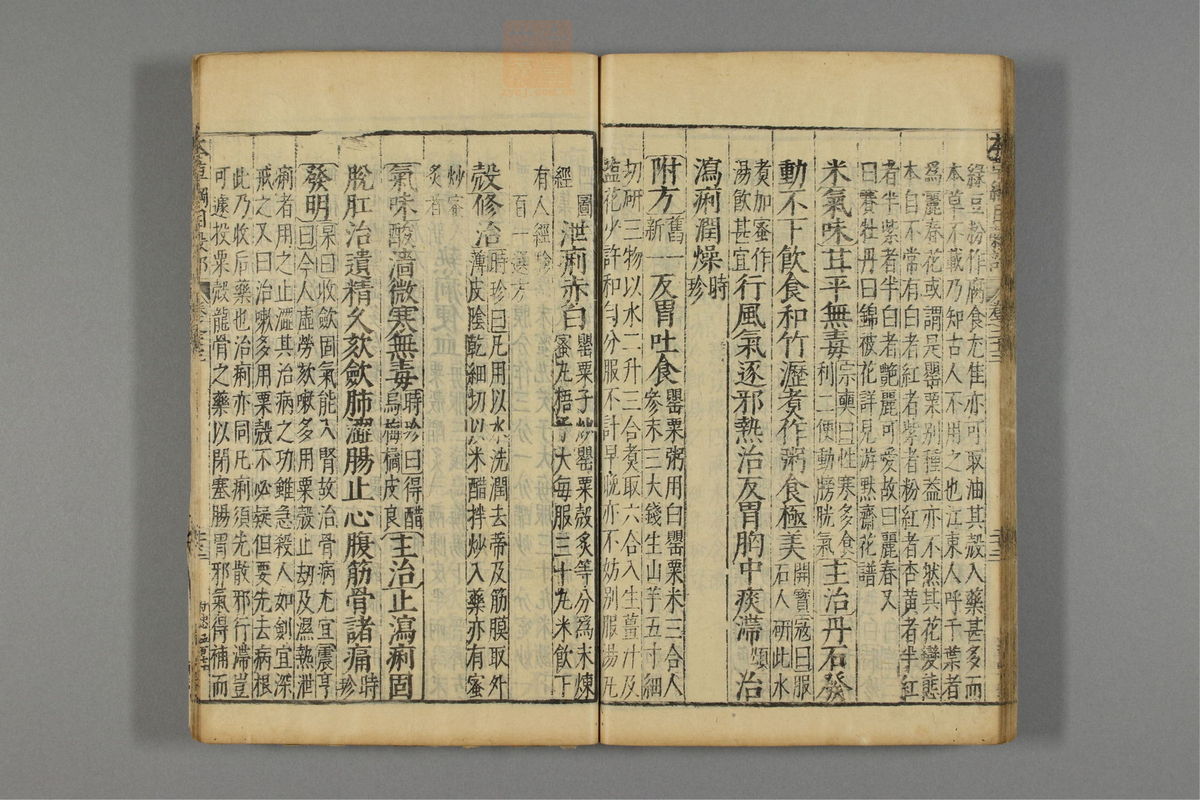 綠豆粉作腐食尤佳亦可取油其殼入藥甚多而
本草不載乃知古人不用之也江東人呼千葉者
爲麗春花或謂是罌粟別種蓋亦不然其花變態
本自不常有白者紅者紫者粉紅者杏黃者半紅
者半紫者半白者艷麗可愛故曰麗春又
曰賽牡丹曰錦被花詳見游默齋花譜
米氣味甘平無毒宗奭曰性寒多食
利二便動膀胱氣主治丹石發
動不下飲食和竹瀝煮作粥食極美開寶寇曰服
石人研此水
煮加蜜作
湯飲甚宜行風氣逐邪熱治反胃胸中痰滯頌治
瀉痢潤燥時
珍
附方舊一
新一反胃吐食罌粟粥用白罌粟米三合人
參末三大錢生山芋五寸細
切研三物以水二升三合煮取六合入生薑汁及
鹽花少許和勻分服不計早晚亦不妨別服湯丸
圖
經泄痢赤白罌粟子炒罌粟殼炙等分爲末煉
蜜丸梧子大每服三十丸米飲下
有人經驗
百一選方
殼修治時珍曰凡用以水洗潤去蒂及筋膜取外
薄皮陰乾細切以米醋拌炒入藥亦有蜜
炒蜜
炙者
氣味酸濇微寒無毒時珍曰得醋
烏梅橘皮良主治止瀉痢固
脫肛治遺精久欬斂肺澀腸止心腹筋骨諸痛時
珍
發明杲曰收斂固氣能入腎故治骨病尤宜震亨
曰今人虛勞欬嗽多用粟殼止劫及濕熱泄
痢者用之止澀其治病之功雖急殺人如劍宜深
戒之又曰治嗽多用粟殼不必疑但要先去病根
此乃收后藥也治痢亦同凡痢須先散邪行滯豈
可遽投粟殼龍骨之藥以閉塞腸胃邪氣得補而
本草綱目穀部